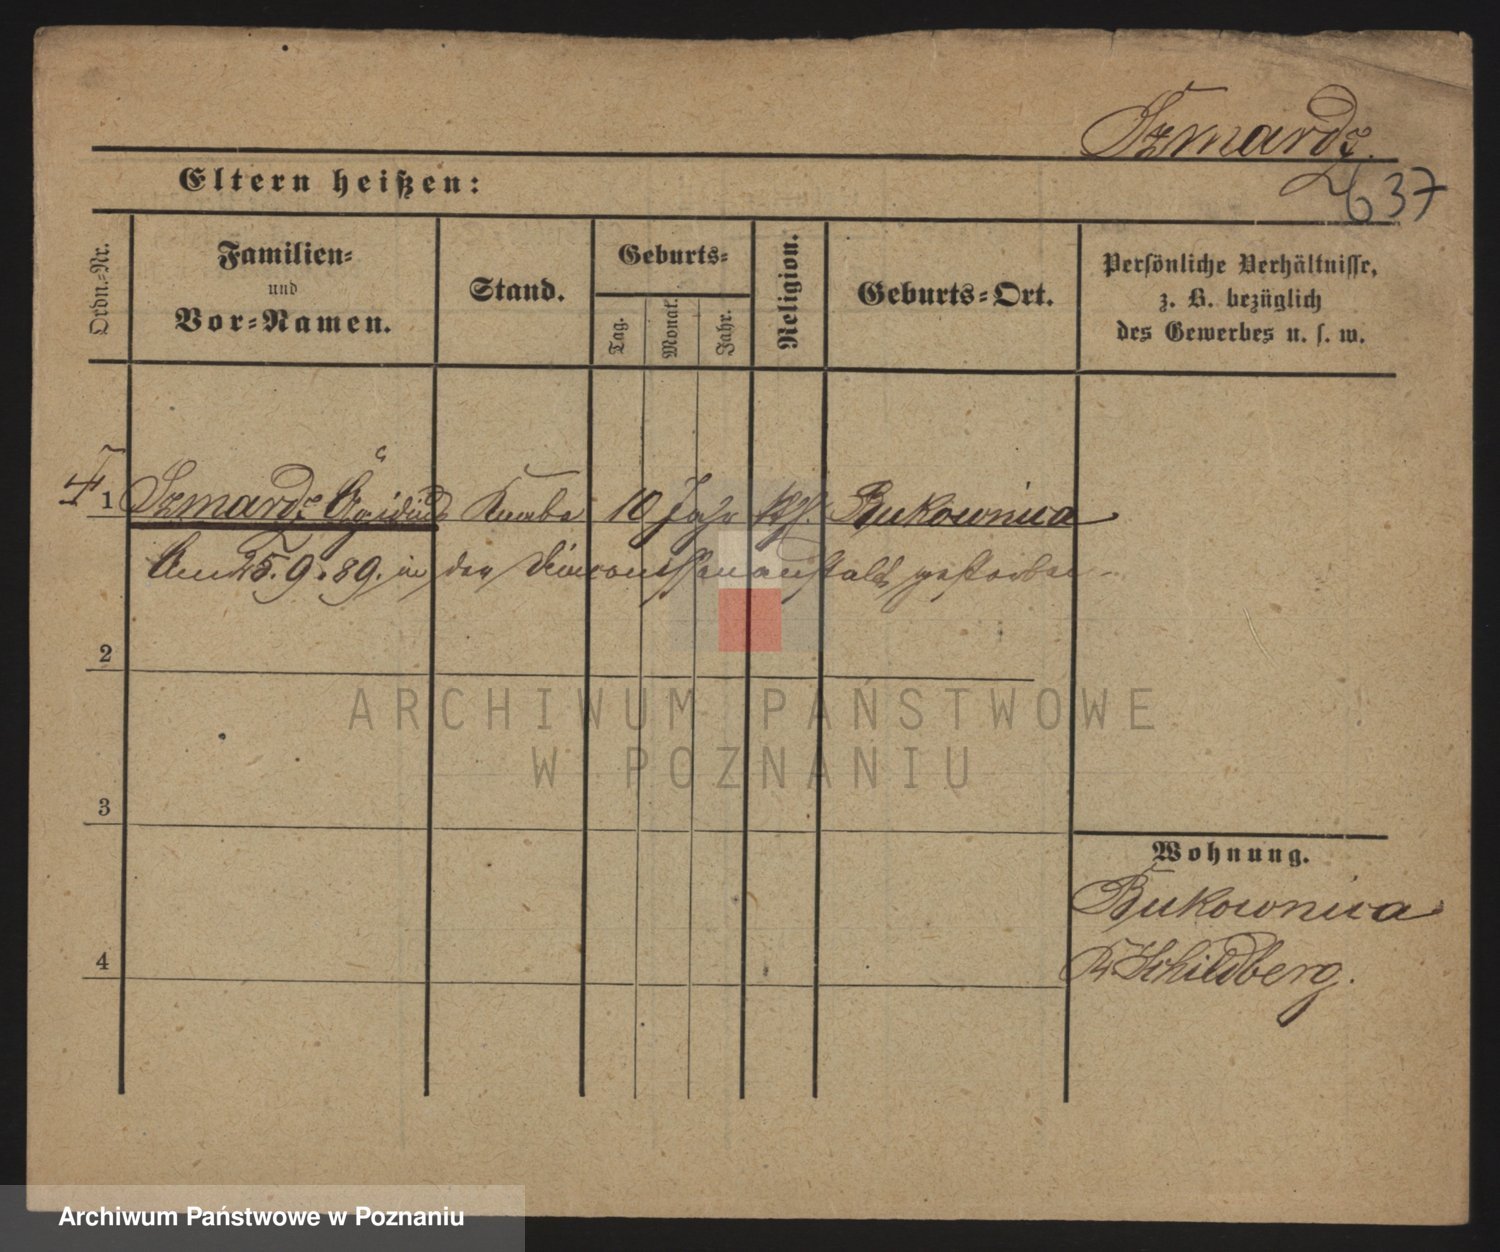 Szmardz.
2637
Eltern heißen:
Ordn.-Nr.
Familien-
und
Vor-Namen.
Stand.
Geburts-
Tag.
Monat.
Jahr.
Religion.
Geburts-Ort.
Persönliche Verhältnisse,
z. B. bezüglich
des Gewerbes u. s. w.
1 Szmardz Ägidius Knabe 10 Jahr kth. Bukownica
Am 25.9.89. in der Diaconissenanstalt gestorben
2
3
4
Wohnung.
Bukownica
Kr Schildberg.
ARCHIWUM PAŃSTWOWE
W POZNANIU
Archiwum Państwowe w Poznaniu